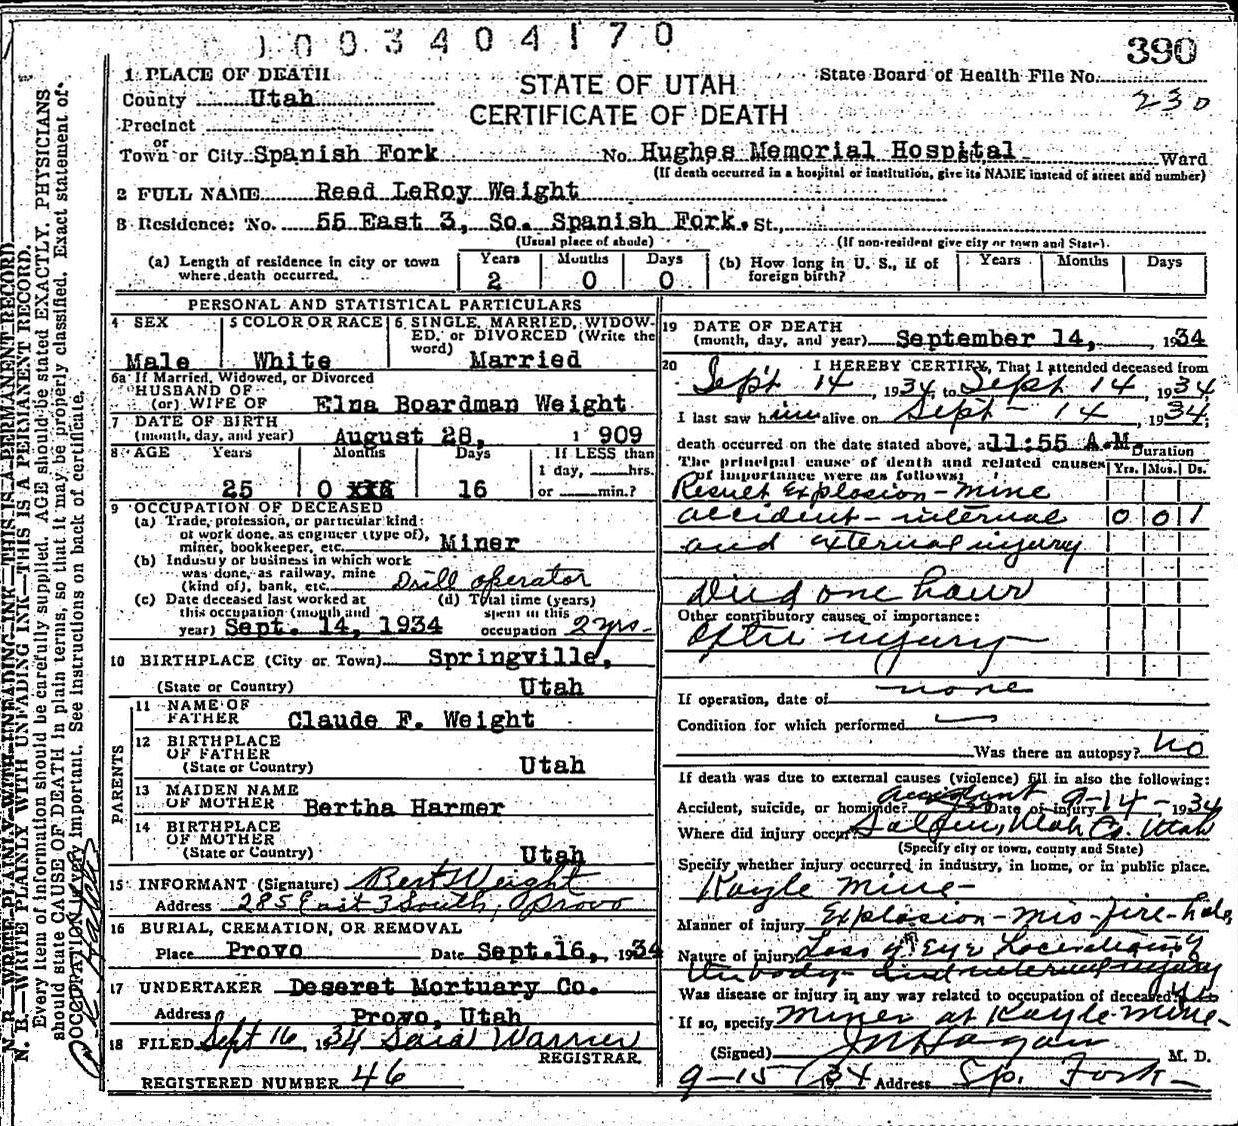 1003404170
390
1 PLACE OF DEATH
STATE OF UTAH
State Board of Health File No.
County Utah
CERTIFICATE OF DEATH
230
Precinct
or
Town or City Spanish Fork No. Hughes Memorial Hospital Ward
(If death occurred in a hospital or institution, give its NAME instead of street and number)
2 FULL NAME Reed LeRoy Weight
3 Residence: No. 55 East 3, So. Spanish Fork. St.,
(Usual place of abode) (If non-resident give city or town and State).
(a) Length of residence in city or town where death occurred. Years 2 Months 0 Days 0
(b) How long in U. S., if of foreign birth? Years Months Days
PERSONAL AND STATISTICAL PARTICULARS
4 SEX Male
5 COLOR OR RACE White
6 SINGLE, MARRIED, WIDOWED, or DIVORCED (Write the word) Married
6a If Married, Widowed, or Divorced
HUSBAND OF
(or) WIFE OF Elna Boardman Weight
7 DATE OF BIRTH
(month, day, and year) August 28, 1909
8 AGE Years 25 Months 0 Days 16
If LESS than 1 day, hrs. or min.?
9 OCCUPATION OF DECEASED
(a) Trade, profession, or particular kind of work done, as engineer (type of), miner, bookkeeper, etc. Miner
(b) Industry or business in which work was done, as railway, mine (kind of), bank, etc. Drill operator
(c) Date deceased last worked at this occupation (month and year) Sept. 14, 1934
(d) Total time (years) spent in this occupation 2 yrs-
10 BIRTHPLACE (City or Town) Springville,
(State or Country) Utah
PARENTS
11 NAME OF FATHER Claude F. Weight
12 BIRTHPLACE OF FATHER
(State or Country) Utah
13 MAIDEN NAME OF MOTHER Bertha Harmer
14 BIRTHPLACE OF MOTHER
(State or Country) Utah
15 INFORMANT (Signature) Bert Weight
Address 285 East 3 South, Provo
16 BURIAL, CREMATION, OR REMOVAL
Place Provo Date Sept. 16, 1934
17 UNDERTAKER Deseret Mortuary Co.
Address Provo, Utah
18 FILED Sept 16 1934 Warner
REGISTRAR.
REGISTERED NUMBER 46
19 DATE OF DEATH
(month, day, and year) September 14, 1934
20 I HEREBY CERTIFY, That I attended deceased from
Sept 14, 1934, to Sept 14, 1934,
I last saw him alive on Sept - 14, 1934,
death occurred on the date stated above, at 11:55 A.M.
The principal cause of death and related causes of importance were as follows: Duration Yrs. Mos. Ds.
Result Explosion - mine
accident - internal 0 0 1
and external injury
Died one hour
Other contributory causes of importance:
after injury
If operation, date of none
Condition for which performed
Was there an autopsy? No
If death was due to external causes (violence) fill in also the following:
Accident, suicide, or homicide? accident Date of injury 9-14-1934
Where did injury occur? Utah Co. Utah
(Specify city or town, county and State)
Specify whether injury occurred in industry, in home, or in public place.
Kayle Mine-
Manner of injury Explosion - mis-fire-hole
Nature of injury Loss of Eye
body - and internal injury
Was disease or injury in any way related to occupation of deceased? Yes
If so, specify Miner at Kayle mine-
(Signed) J M Hagan M. D.
9-15/34 Address Sp. Fork-
N. B.—WRITE PLAINLY WITH UNFADING INK—THIS IS A PERMANENT RECORD.
Every item of information should be carefully supplied. AGE should be stated EXACTLY. PHYSICIANS
should state CAUSE OF DEATH in plain terms, so that it may be properly classified. Exact statement of
OCCUPATION is very important. See instructions on back of certificate.